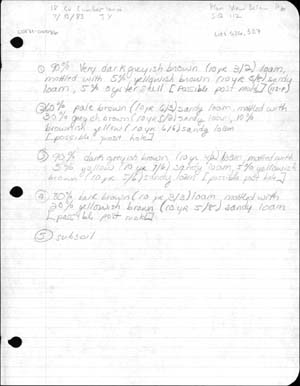 7/12/83 JY
SQ 112
① 90% Very dark greyish brown (10 yr 3/2) loam,
mottled with 5% yellowish brown (10 yr 5/6) sandy
loam, 5% oyster shell [Possible post mold]
② 60% pale brown (10 yr 6/3) sandy loam, mottled with
30% greyish brown (10 yr 5/2) sandy loam, 10%
brownish yellow (10 yr 6/6) sandy loam
[possible post hole]
③ 90% dark greyish brown (10 yr 4/2) loam, mottled with
5% yellow (10 yr 7/6) sandy loam, 5% yellowish
brown (10 yr 5/6) sandy loam [possible post hole]
④ 80% dark brown (10 yr 3/3) loam mottled with
20% yellowish brown (10 yr 5/8) sandy loam
[possible post mold]
⑤ subsoil